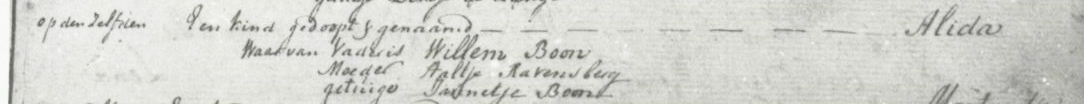 op den zelfden Een kind gedoopt & genaamd — — — — — — — — Alida
Waar van Vader is Willem Boon
Moeder Aaltje Ravensberg
getuige Jannetje Boon